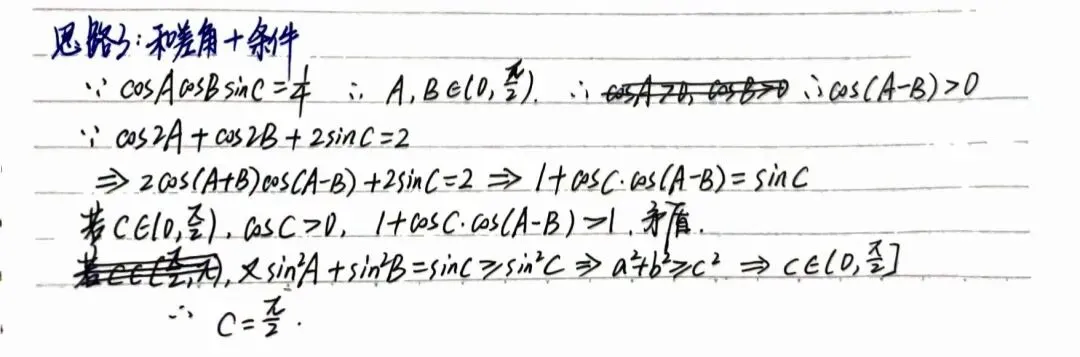 思路3:和差角+条件
∵ cosAcosBsinC=1/4 ∴ A,B∈(0,π/2). ∴ cosA>0, cosB>0 ∴cos(A-B)>0
∵ cos2A+cos2B+2sinC=2
⇒ 2cos(A+B)cos(A-B)+2sinC=2 ⇒ 1+cosC·cos(A-B)=sinC
若C∈(0,π/2), cosC>0, 1+cosC·cos(A-B)>1, 矛盾.
若C∈(π/2,π), 又sin²A+sin²B=sinC≥sin²C ⇒ a²+b²≥c² ⇒ C∈(0,π/2]
∴ C=π/2.